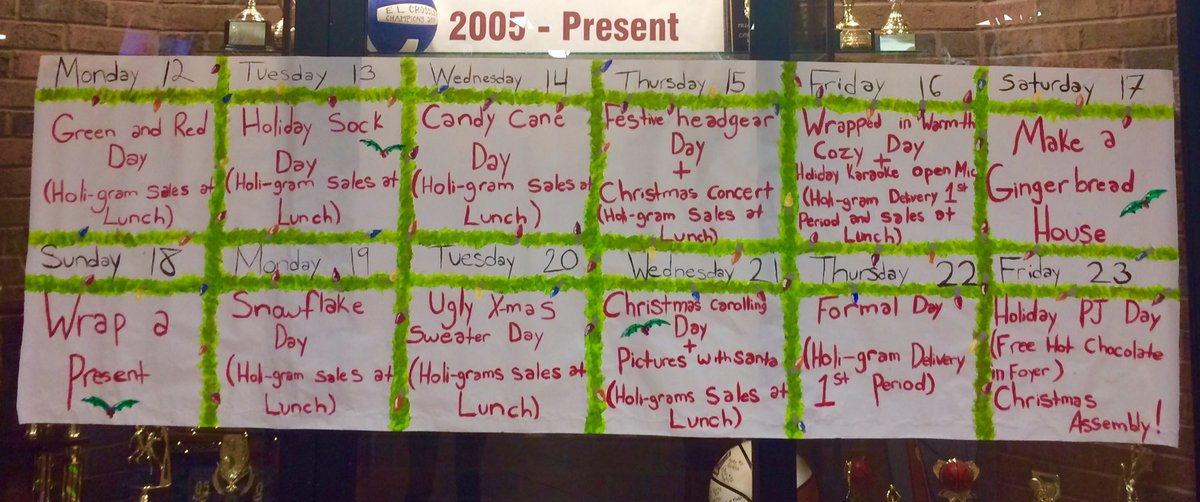 EL CROSSL
CHAMPIONS
2005 - Present
Monday 12
Green and Red
Day
(Holi-gram sales at
Lunch)
Tuesday 13
Holiday Sock
Day
(Holi-gram sales at
Lunch)
Wednesday 14
Candy Cane
Day
(Holi-gram sales at
Lunch)
Thursday 15
Festive headgear
Day
+
Christmas Concert
(Holi-gram sales at
Lunch)
Friday 16
Wrapped in Warmth
Cozy Day
+
Holiday Karaoke open Mic
(Holi-gram Delivery 1st
Period and sales at
Lunch)
Saturday 17
Make a
Gingerbread
House
Sunday 18
Wrap a
Present
Monday 19
Snowflake
Day
(Holi-gram sales at
Lunch)
Tuesday 20
Ugly X-mas
Sweater Day
(Holi-grams sales at
Lunch)
Wednesday 21
Christmas carolling
Day
+
Pictures with santa
(Holi-grams Sales at
Lunch)
Thursday 22
Formal Day
(Holi-gram Delivery
1st Period)
Friday 23
Holiday PJ Day
(Free Hot Chocolate
in Foyer)
Christmas
Assembly!